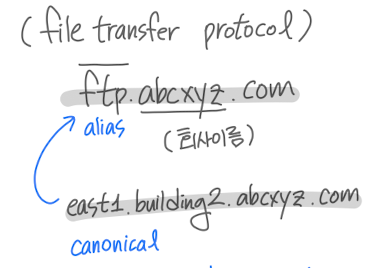 (file transfer protocol)
ftp.abcxyz.com
alias
(회사이름)
east1.building2.abcxyz.com
canonical